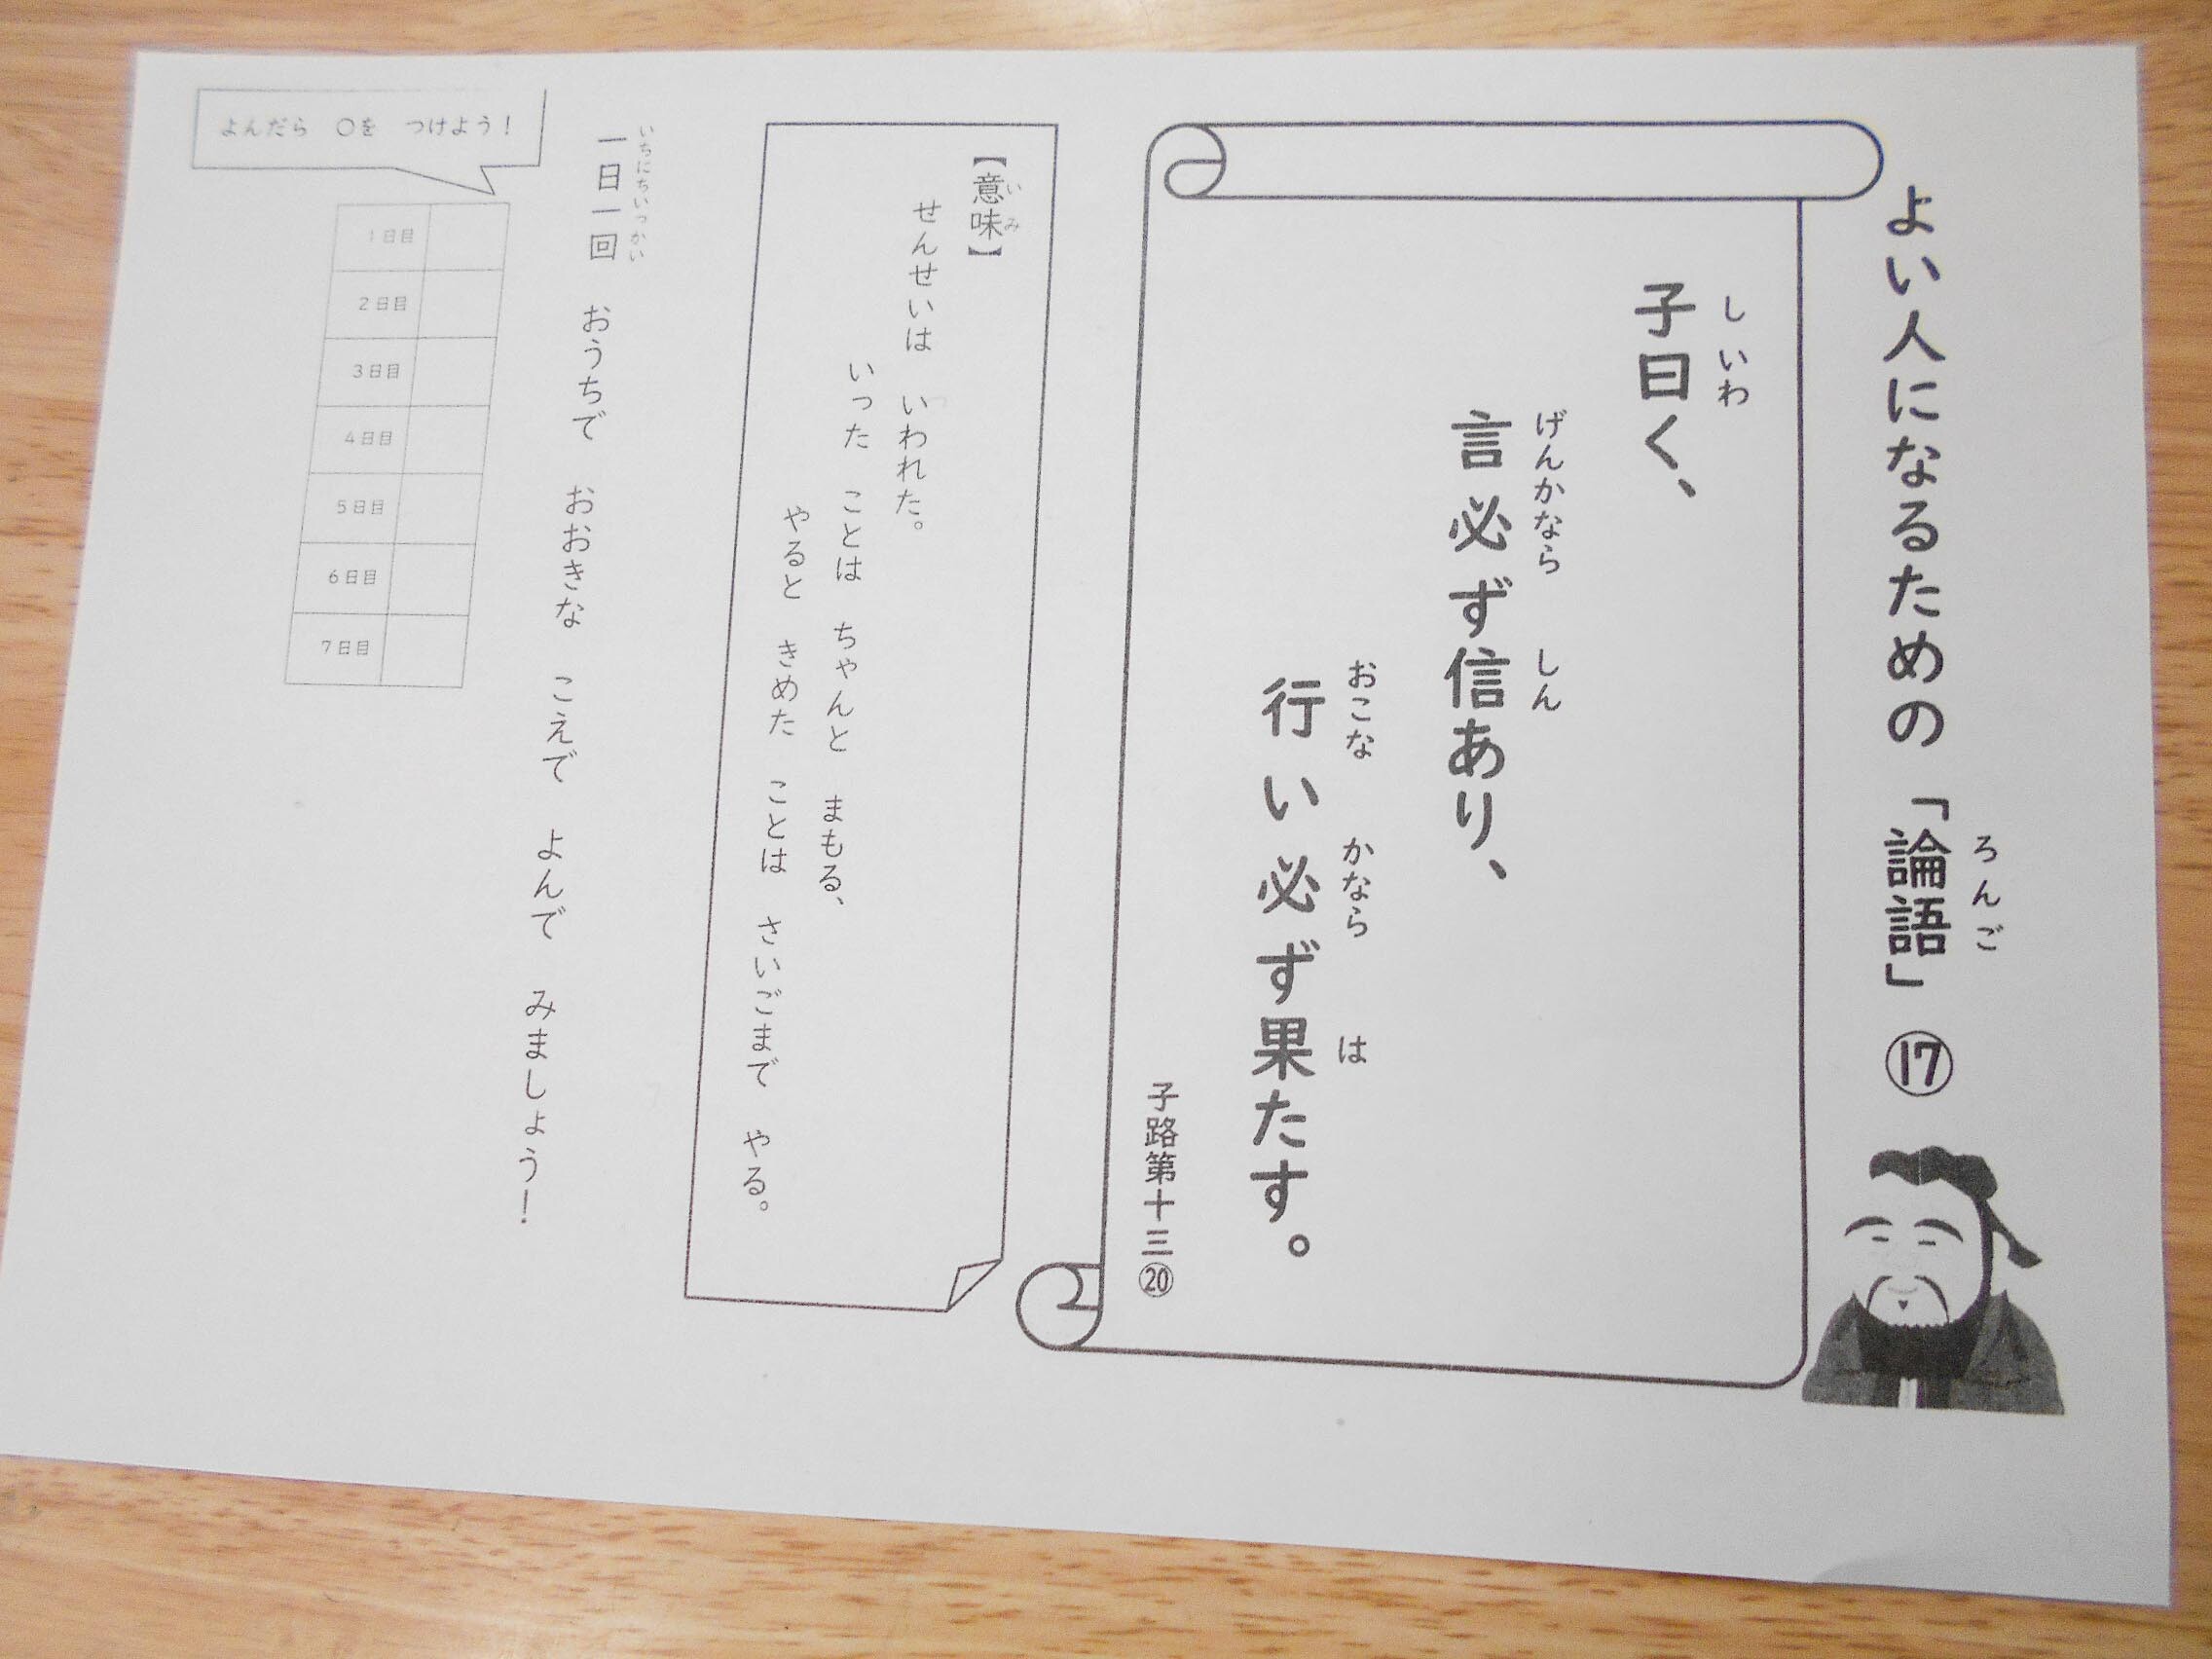 よい人になるための「論語」⑰
ろんご
子曰く、
しいわ
言必ず信あり、
げんかなら しん
行い必ず果たす。
おこな かなら は
子路第十三⑳
【意味】
いみ
せんせいは いわれた。
いった ことは ちゃんと まもる、
やると きめた ことは さいごまで やる。
一日一回 おうちで おおきな こえで よんで みましょう！
いちにちいっかい
よんだら ○を つけよう！
1日目
2日目
3日目
4日目
5日目
6日目
7日目